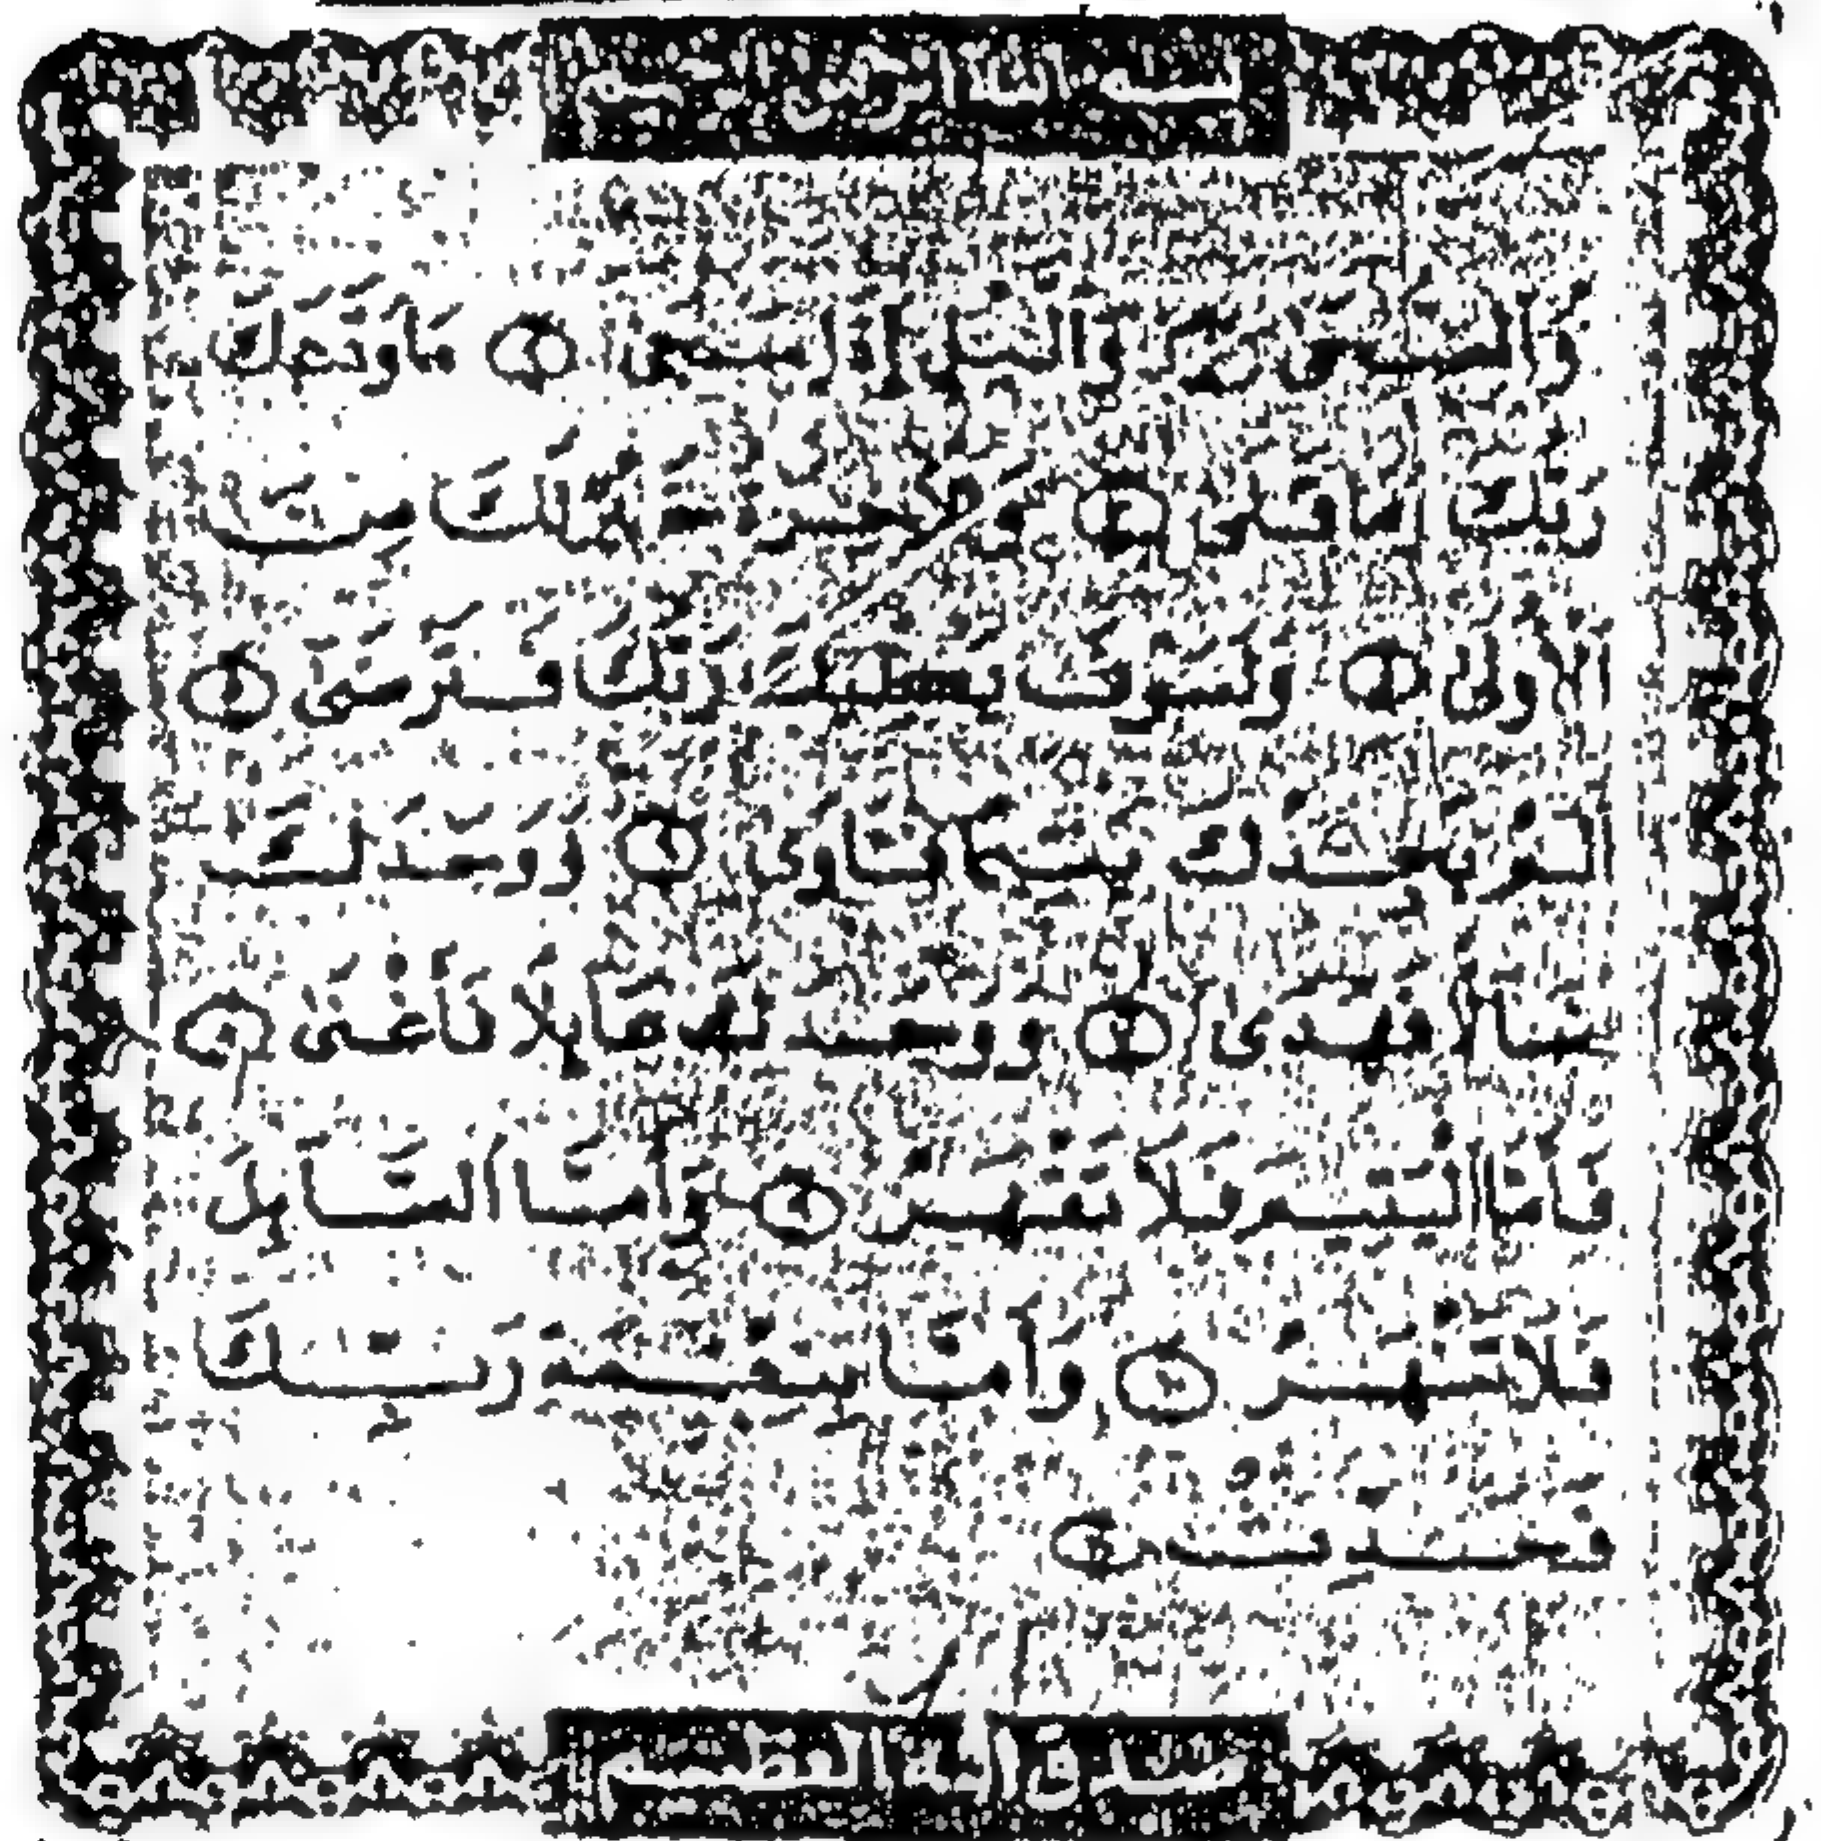 بسم الله الرحمن الرحيم
وَالضُّحَىٰ وَالَّيْلِ إِذَا سَجَىٰ ② مَا وَدَّعَكَ
رَبُّكَ وَمَا قَلَىٰ ③ وَلَلْآخِرَةُ خَيْرٌ لَّكَ مِنَ
الْأُولَىٰ ④ وَلَسَوْفَ يُعْطِيكَ رَبُّكَ فَتَرْضَىٰ ⑤
أَلَمْ يَجِدْكَ يَتِيمًا فَآوَىٰ ⑥ وَوَجَدَكَ
ضَالًّا فَهَدَىٰ ⑦ وَوَجَدَكَ عَائِلًا فَأَغْنَىٰ ⑧
فَأَمَّا الْيَتِيمَ فَلَا تَقْهَرْ ⑨ وَأَمَّا السَّائِلَ
فَلَا تَنْهَرْ ⑩ وَأَمَّا بِنِعْمَةِ رَبِّكَ
فَحَدِّثْ ⑪
صدق الله العظيم